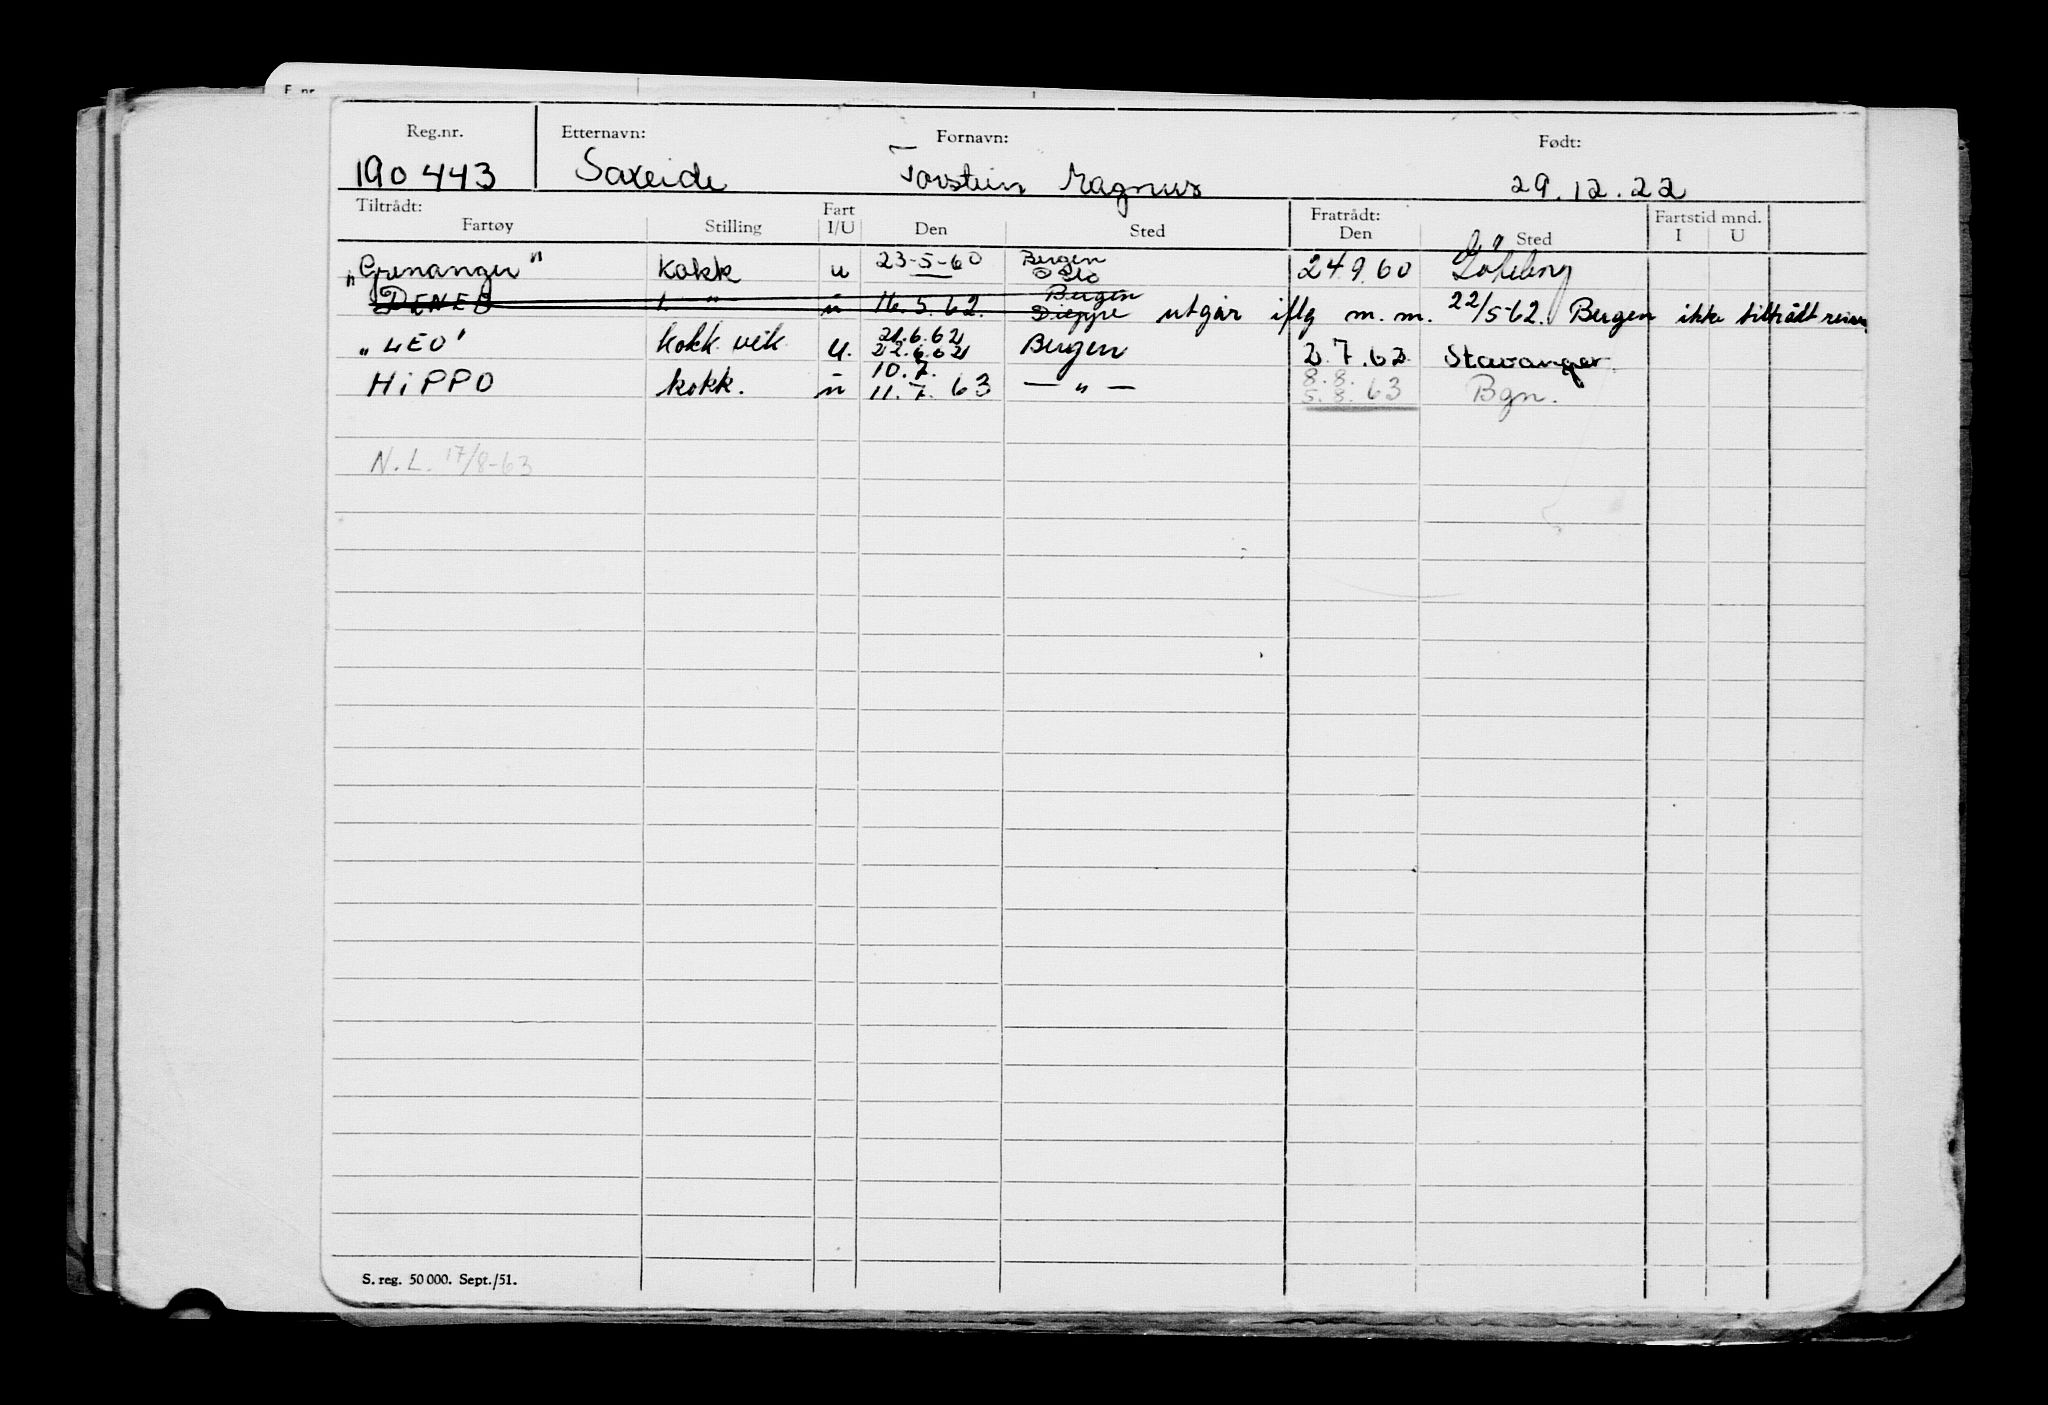 Reg.nr. Etternavn: Fornavn: Født:
190443 Saxeide Torstein Magnus 29.12.22
Tiltrådt: Fart Fratrådt: Fartstid mnd.
Fartøy Stilling I/U Den Sted Den Sted I U
"Grenanger" Kokk u 23-5-60 Bergen Oslo 24.9.60
DENEB " u 16.5.62. Bergen Dieppe utgår iflg m.m. 22/5-62. Bergen ikke tiltrådt
"LEO" kokk vik. u. 21.6.62 22.6.62 Bergen 2.7.62 Stavanger.
HiPPO kokk. u 10.7. 11.7.63 — " — 8.8. 5.8.63 Bgn.
N.L. 17/8-63
S. reg. 50 000. Sept./51.